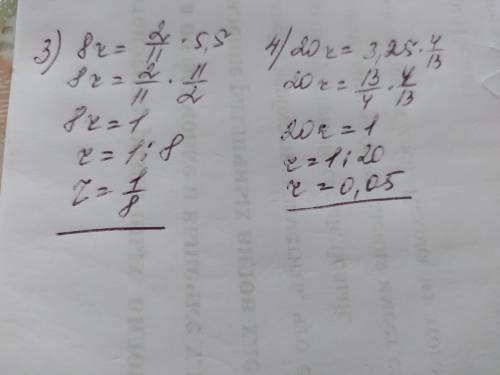 3) 8x = 2/11 · 5,5
8x = 2/11 · 11/2
8x = 1
x = 1 : 8
x = 1/8
4) 20x = 3,25 · 4/13
20x = 13/4 · 4/13
20x = 1
x = 1 : 20
x = 0,05